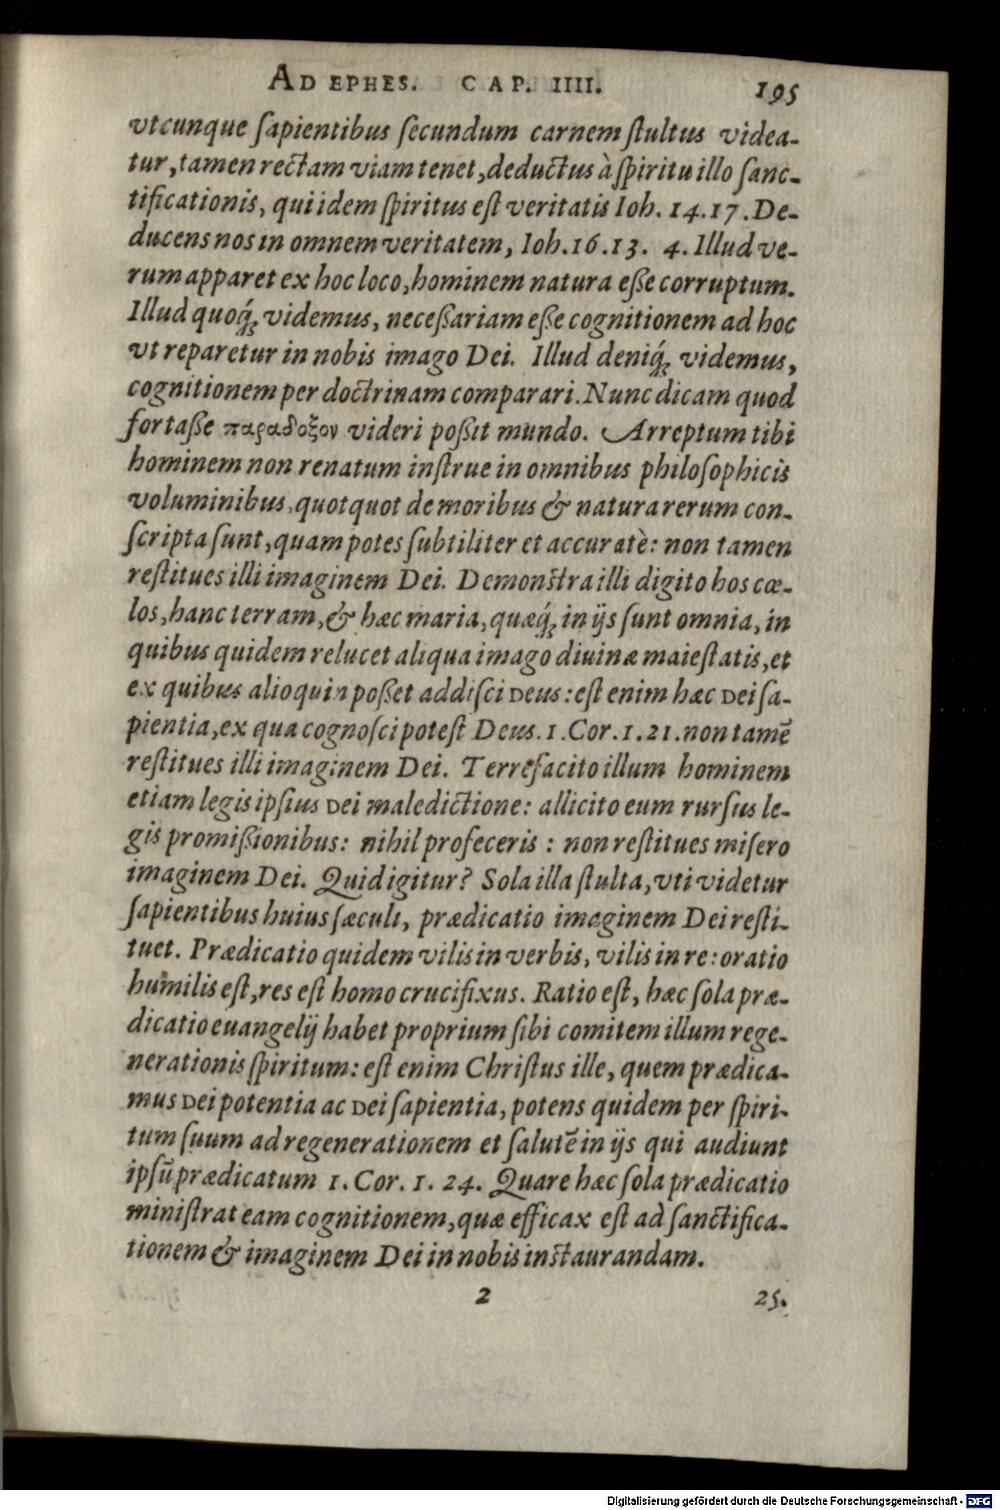 AD EPHES. CAP. IIII. 195
vtcunque ſapientibus ſecundum carnem ſtultus videa-
tur, tamen rectam viam tenet, deductus à ſpiritu illo ſanc-
tificationis, qui idem ſpiritus eſt veritatis Ioh. 14.17. De-
ducens nos in omnem veritatem, Ioh. 16.13. 4. Illud ve-
rum apparet ex hoc loco, hominem natura eſſe corruptum.
Illud quoq́; videmus, neceſſariam eſſe cognitionem ad hoc
vt reparetur in nobis imago Dei. Illud deniq́; videmus,
cognitionem per doctrinam comparari. Nunc dicam quod
fortaſſe παραδοξον videri poſſit mundo. Arreptum tibi
hominem non renatum inſtrue in omnibus philoſophicis
voluminibus, quotquot de moribus & natura rerum con-
ſcripta ſunt, quam potes ſubtiliter et accuratè: non tamen
reſtitues illi imaginem Dei. Demonſtra illi digito hos cœ-
los, hanc terram, & hæc maria, quæq́; in ijs ſunt omnia, in
quibus quidem relucet aliqua imago diuinæ maieſtatis, et
ex quibus alioquin poſſet addiſci Deus: eſt enim hæc Dei ſa-
pientia, ex qua cognoſci poteſt Deus. 1. Cor. 1. 21. non tamē
reſtitues illi imaginem Dei. Terrefacito illum hominem
etiam legis ipſius Dei maledictione: allicito eum rurſus le-
gis promiſſionibus: nihil profeceris: non reſtitues miſero
imaginem Dei. Quid igitur? Sola illa ſtulta, vti videtur
ſapientibus huius ſæculi, prædicatio imaginem Dei reſti-
tuet. Prædicatio quidem vilis in verbis, vilis in re: oratio
humilis eſt, res eſt homo crucifixus. Ratio eſt, hæc ſola præ-
dicatio euangelij habet proprium ſibi comitem illum rege-
nerationis ſpiritum: eſt enim Chriſtus ille, quem prædica-
mus Dei potentia ac Dei ſapientia, potens quidem per ſpiri-
tum ſuum ad regenerationem et ſalutē in ijs qui audiunt
ipſū prædicatum 1. Cor. 1. 24. Quare hæc ſola prædicatio
miniſtrat eam cognitionem, quæ efficax eſt ad ſanctifica-
tionem & imaginem Dei in nobis inſtaurandam.
2 25.
Digitalisierung gefördert durch die Deutsche Forschungsgemeinschaft - DFG